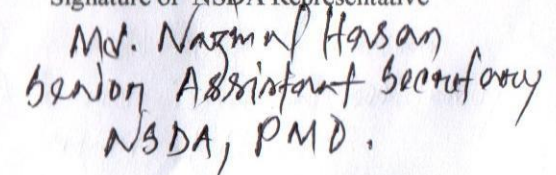 Signature of NSDA Representative
Md. Nazmul Hasan
Senior Assistant Secretary
NSDA, PMO.